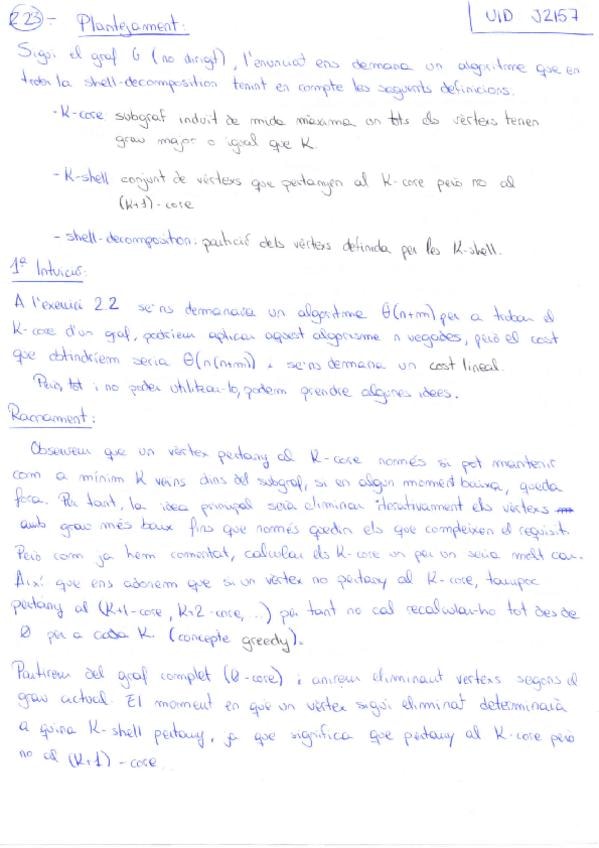 2.23 - Plantejament:
UID J2157
Sigui el graf G (no dirigit), l'enunciat ens demana un algoritme que en
trobi la shell-decomposition tenint en compte les següents definicions.
- K-core subgraf induit de mida màxima on tots els vèrtexs tenen
grau major o igual que K.
- K-shell conjunt de vèrtexs que pertanyen al K-core però no al
(K+1)-core
- shell-decomposition: partició dels vèrtexs definida per les K-shell.
1ª Intuició:
A l'exercici 2.2 se'ns demanava un algoritme θ(n+m) per a trobar el
K-core d'un graf, podríem aplicar aquest algorisme n vegades, però el cost
que obtindríem seria θ(n(n+m)) i se'ns demana un cost lineal.
Però, tot i no poder utilitzar-lo, podem prendre algunes idees.
Raonament:
Observem que un vèrtex pertany al K-core només si pot mantenir
com a mínim K veïns dins del subgraf, si en algun moment baixa, queda
fora. Per tant, la idea principal serà eliminar iterativament els vèrtexs
amb grau més baix fins que només quedin els que compleixen el requisit.
Però com ja hem comentat, calcular els K-core un per un seria molt car.
Així que ens adonem que si un vèrtex no pertany al K-core, tampoc
pertany al (K+1-core, K+2-core, ..) per tant no cal recalcular-ho tot des de
0 per a cada K. (concepte greedy).
Partirem del graf complet (0-core) i anirem eliminant vèrtexs segons el
grau actual. El moment en que un vèrtex sigui eliminat determinarà
a quina K-shell pertany, ja que significa que pertany al K-core però
no al (K+1)-core.